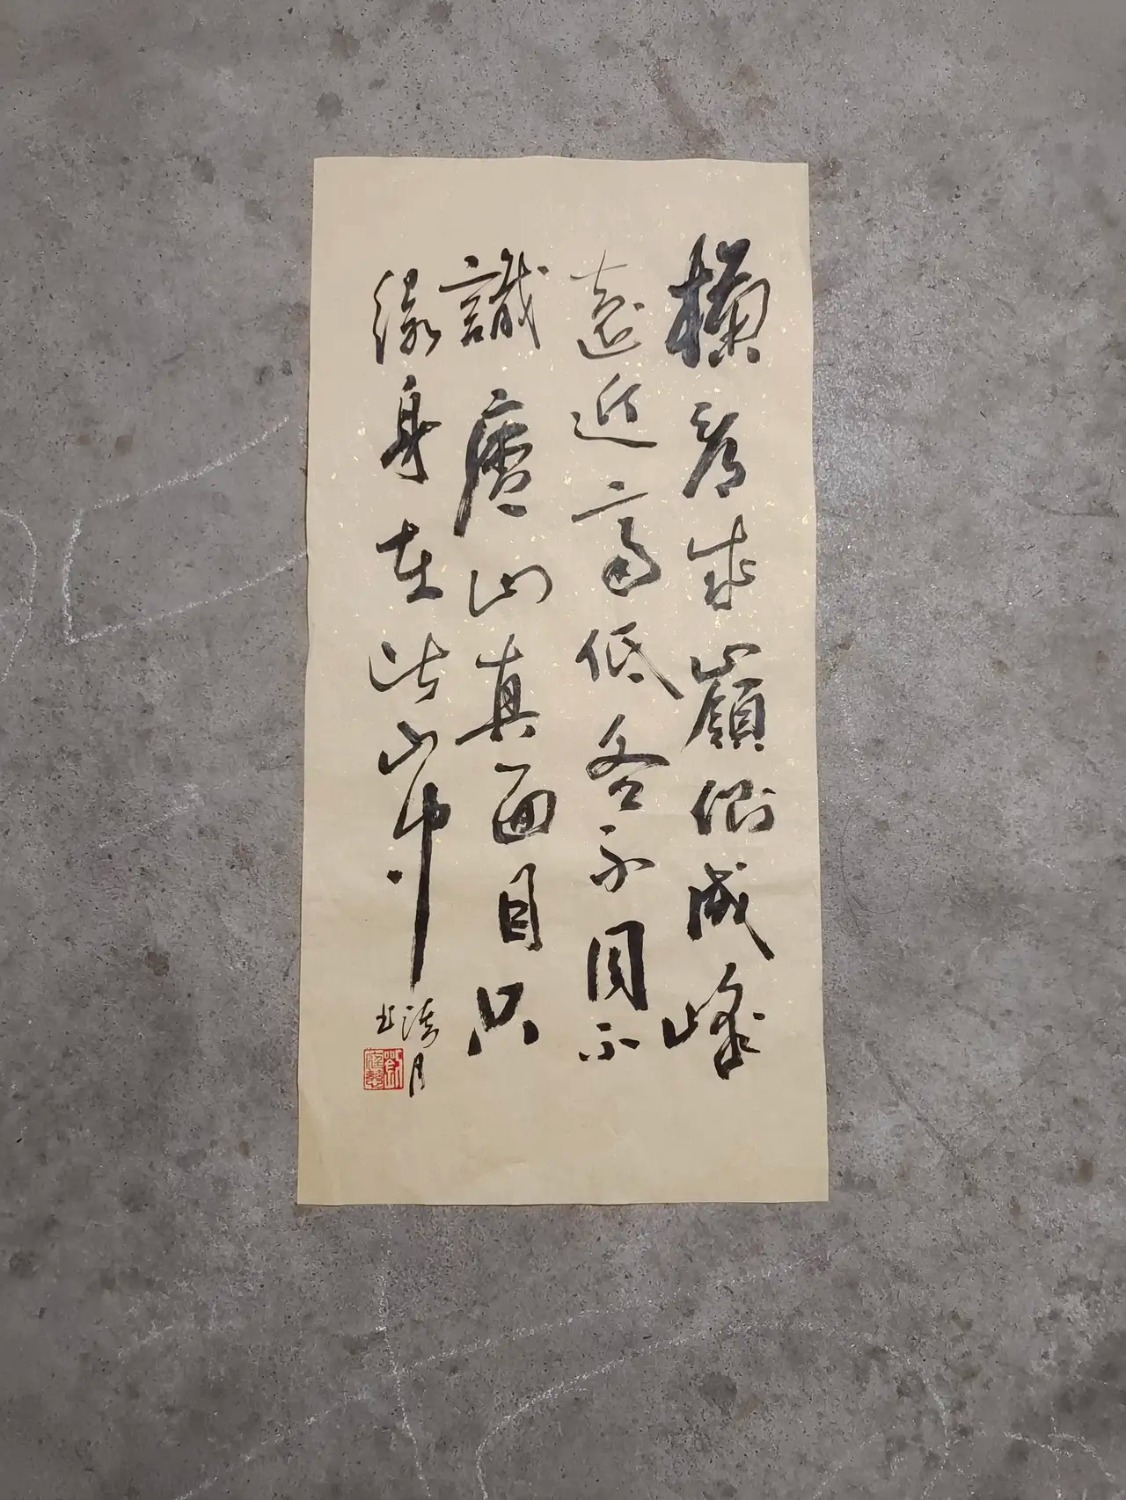 橫看成嶺側成峰
遠近高低各不同不
識廬山真面目只
緣身在此山中
清月
書